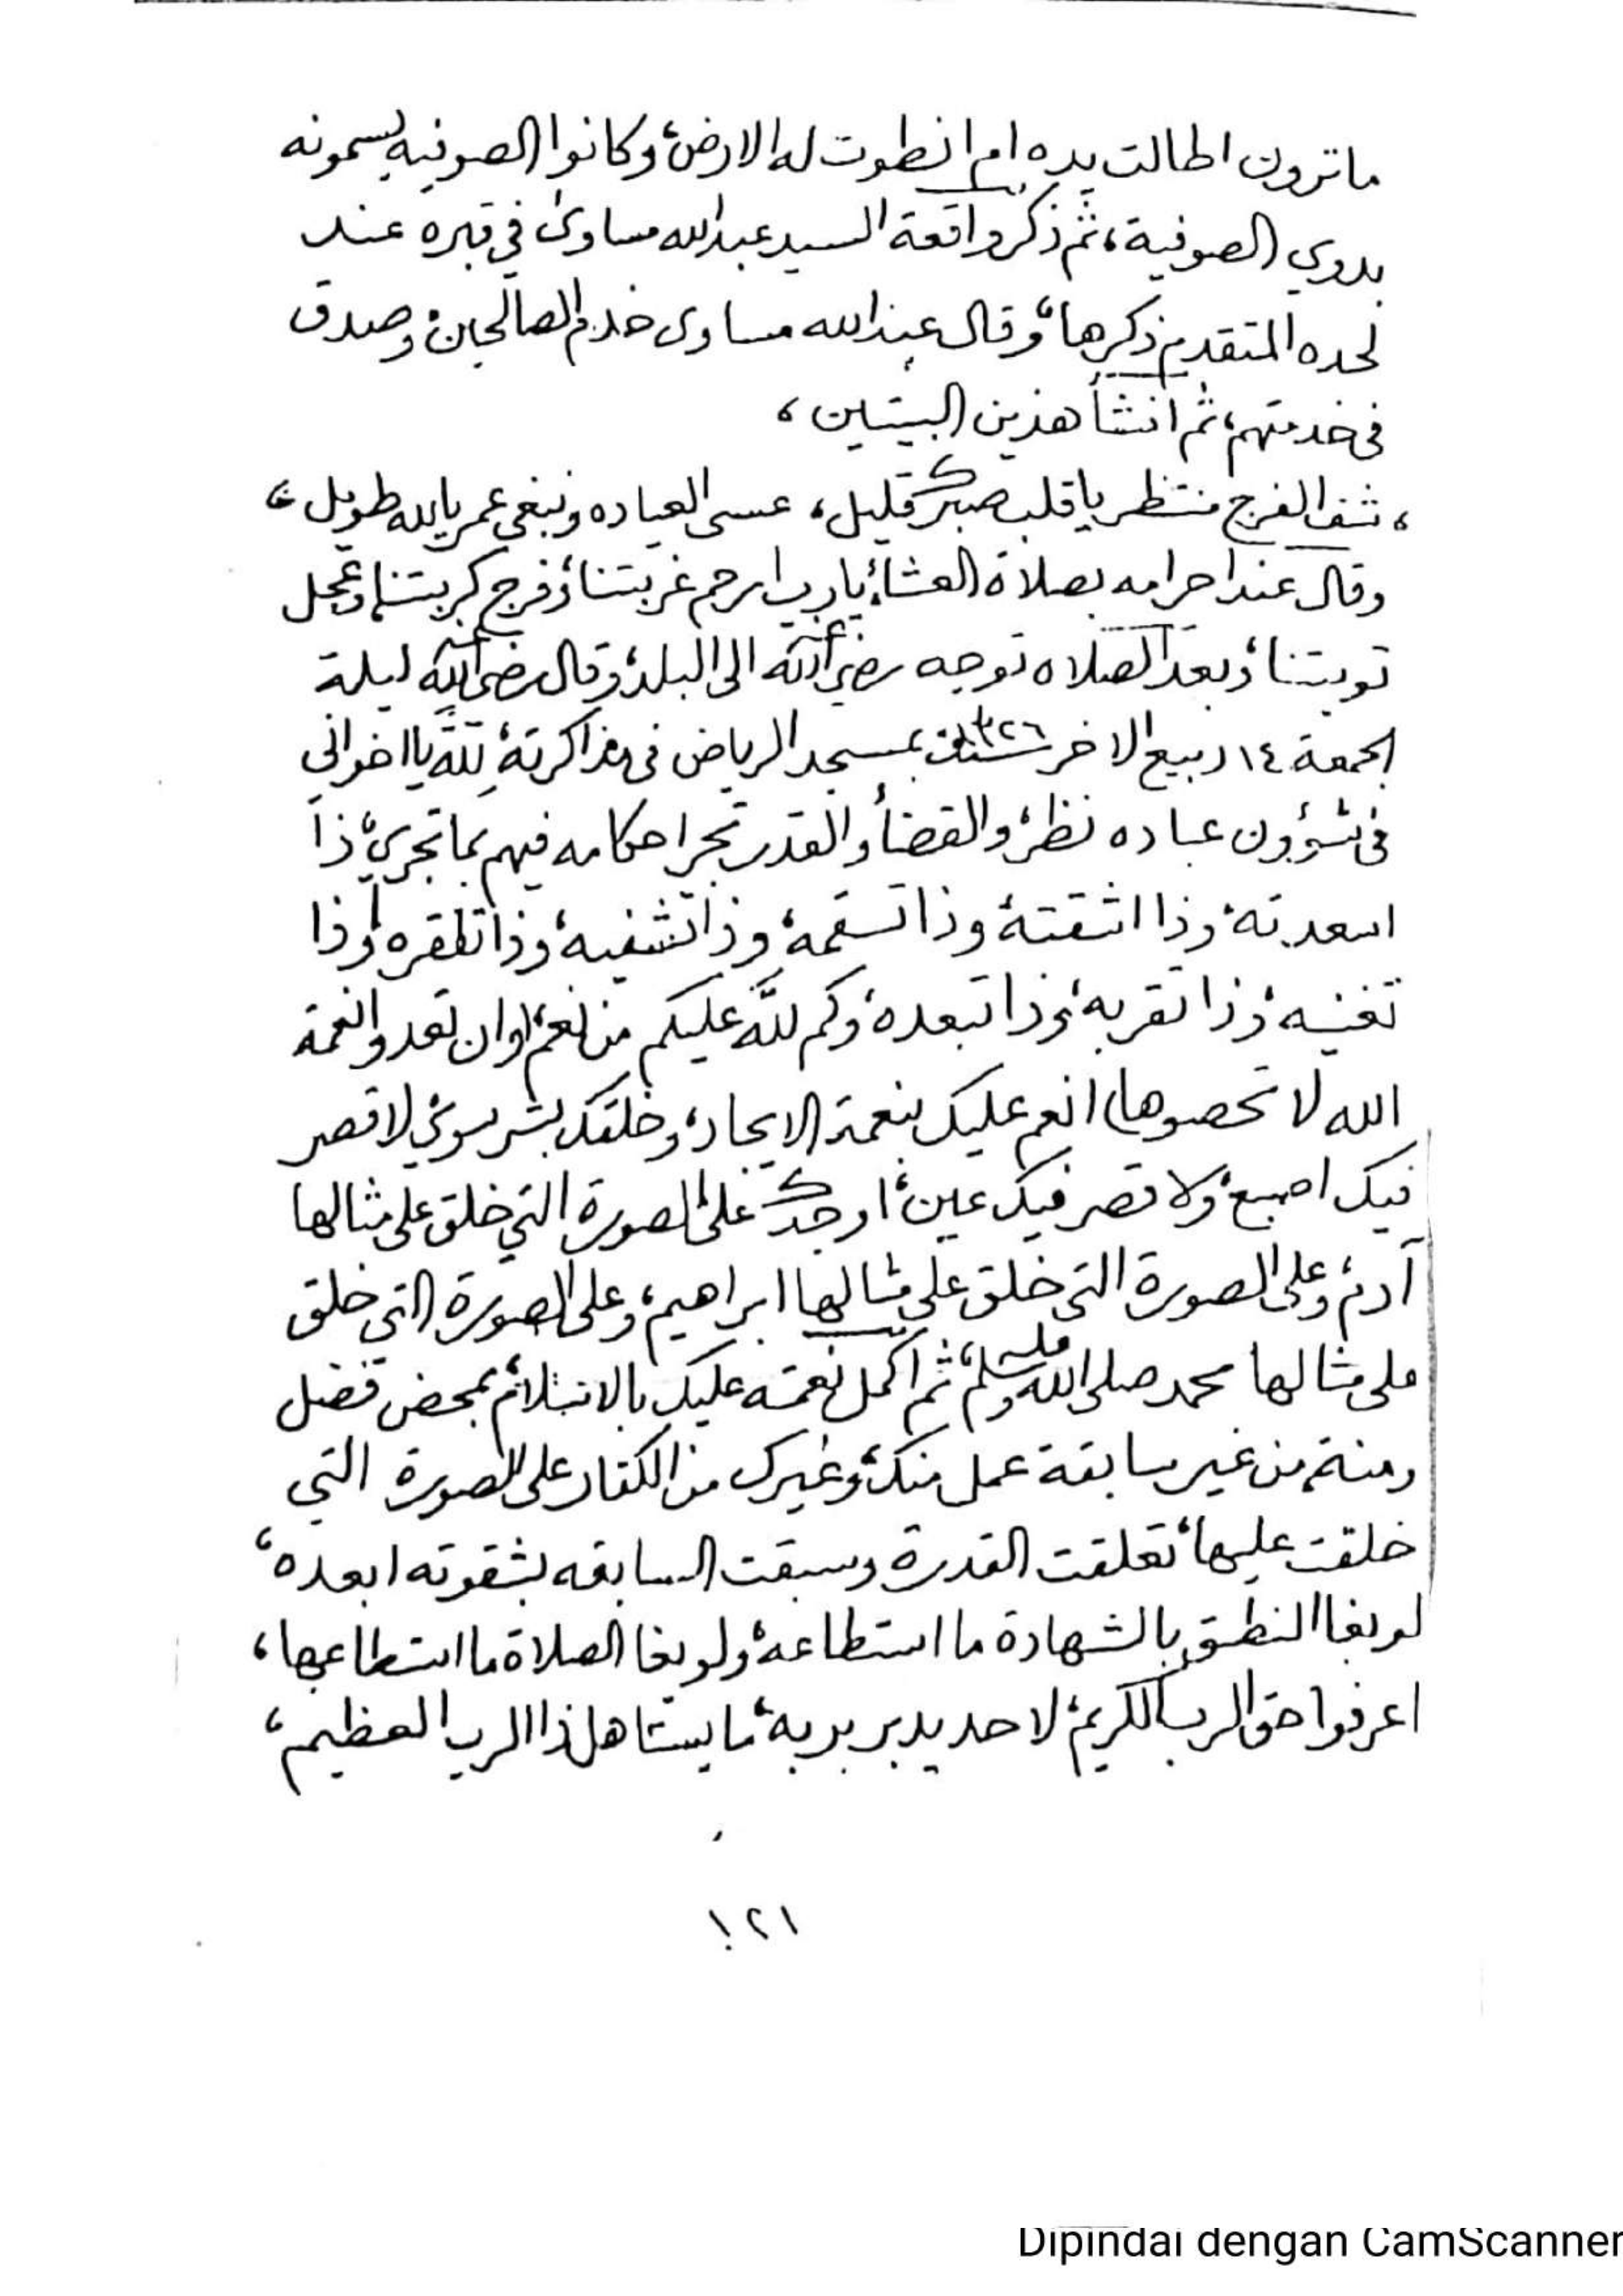 ماترون اطالت يده ام انطوت له الارض، وكانوا الصوفيه يسمونه
بدوي الصوفية، ثم ذكر واقعة السيد عبدالله مساوى في قبره عند
لحده المتقدم ذكرها، وقال عبدالله مساوى خدم الصالحين، وصدق
في خدمتهم، ثم انشأ هذين البيتين،
، شف الفرج منتظر ياقلب صبرك قليل، عسى العباده ونبغى عمر يالله طويل،
وقال عند احرامه بصلاة العشاء، يارب ارحم غربتنا، وفرج كربتنا، وعجل
توبتنا، وبعد الصلاه توجه رضي الله عنه الى البلد، وقال رضي الله عنه ليلة
الجمعة ١٤ ربيع الاخر سنة ١٣٢٦ بمسجد الرياض في مذاكرته، لله يااخواني
في شؤون عباده نظر، والقضاء والقدر تجر احكامه فيهم بما تجري، ذا
اسعدته، وذا اشقته، وذا تسقمه، وذا تشفيه، وذا تفقره، وذا
تغنيه، وذا تقربه، وذا تبعده، وكم لله عليكم من نعم، (وان تعدوا نعمة
الله لا تحصوها) انعم عليك بنعمة الايجاد، وخلقك بشر سوي، لا قصر
فيك اصبع، ولا قصر فيك عين، اوجدك على الصورة التي خلق على مثالها
آدم، وعلى الصورة التي خلق على مثالها ابراهيم، وعلى الصورة التي خلق
على مثالها محمد صلى الله عليه وسلم، ثم اكمل نعمته عليك بمحض فضل
ومنة من غير سابقة عمل منك، وغيرك من الكفار على الصورة التي
خلقت عليها، تعلقت القدرة وسبقت السابقه بشقوته ابعده،
لو بغا النطق بالشهادة ما استطاعه، ولو بغا الصلاة ما استطاعها،
اعرفوا حق الرب الكريم، لا حد يدبر بربه، ما يستاهل ذا الرب العظيم،
١٢١
Dipindai dengan CamScanner